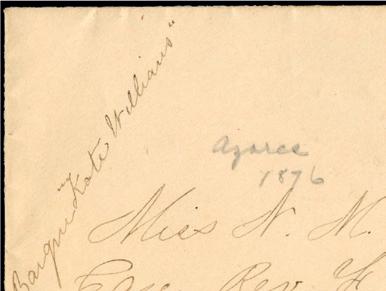 Barque "Kate Williams"
Azores
1876
Miss N. M.
Care Rev. H